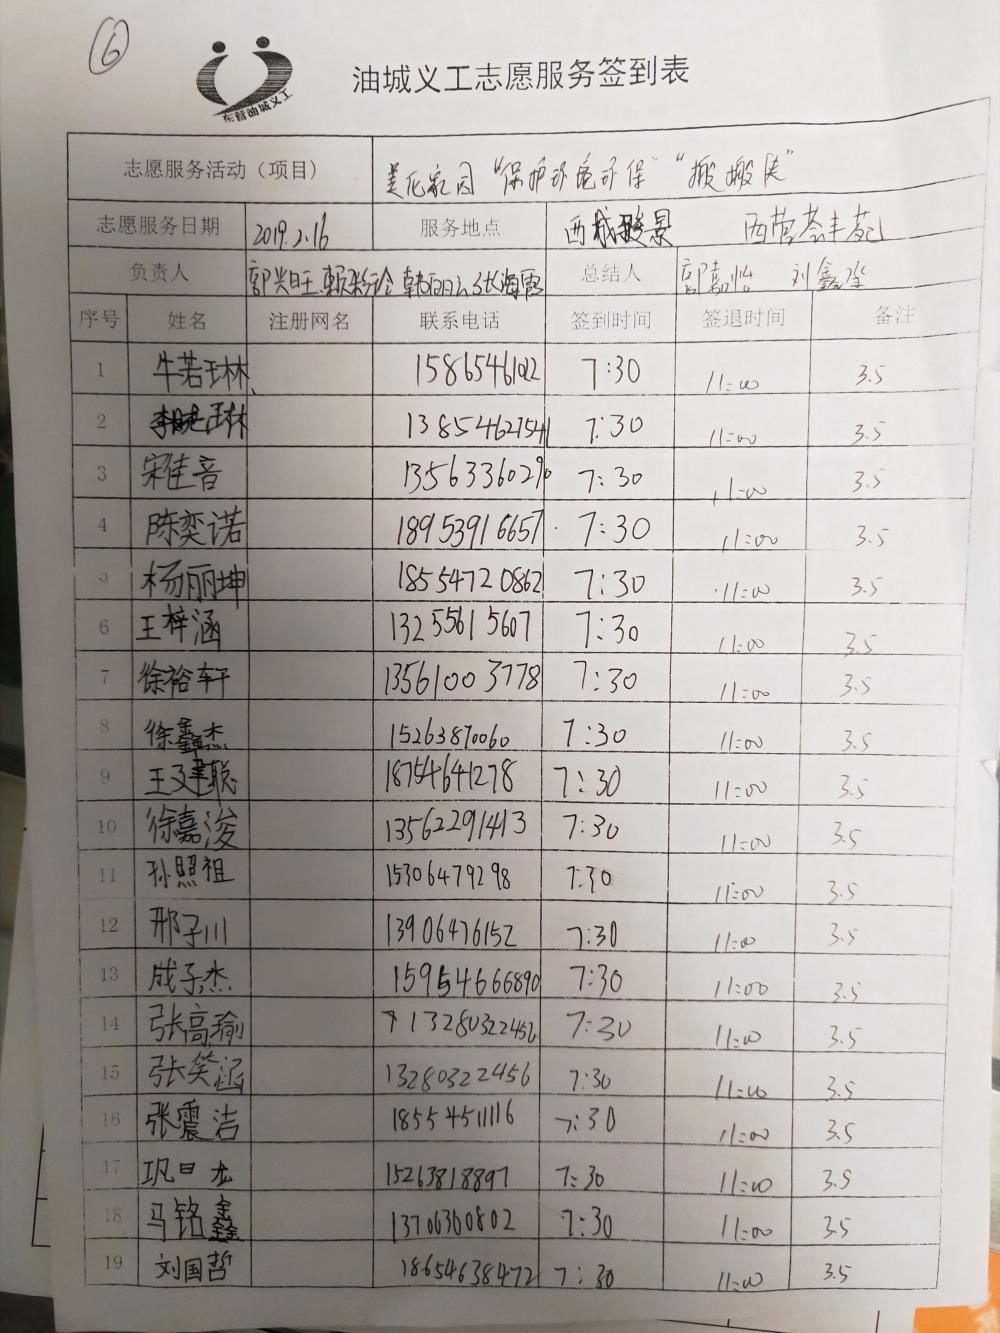 6
东营油城义工
油城义工志愿服务签到表
志愿服务活动（项目） 美化家园“保护环境环保”“搬搬侠”
志愿服务日期 2019.2.16 服务地点 西城骏景 西营荟丰苑
负责人 郭兴旺 韩白云 张海霞 总结人 郭嘉怡 刘鑫
序号 姓名 注册网名 联系电话 签到时间 签退时间 备注
1 牛若琳 15865461022 7:30 11:00 3.5
2 李琬琳 13854627541 7:30 11:00 3.5
3 宋佳音 13563360290 7:30 11:00 3.5
4 陈奕诺 18953916657 7:30 11:00 3.5
5 杨丽坤 18554720862 7:30 11:00 3.5
6 王梓涵 13255615607 7:30 11:00 3.5
7 徐裕轩 13561003778 7:30 11:00 3.5
8 徐鑫杰 15263870060 7:30 11:00 3.5
9 王建聪 18754641278 7:30 11:00 3.5
10 徐嘉浚 13562291413 7:30 11:00 3.5
11 孙照祖 15306479298 7:30 11:00 3.5
12 邢子川 13906476152 7:30 11:00 3.5
13 成子杰 15954666890 7:30 11:00 3.5
14 张高瑜 13280322456 7:30 11:00 3.5
15 张笑涵 13280322456 7:30 11:00 3.5
16 张震洁 18554511116 7:30 11:00 3.5
17 巩日龙 15263818897 7:30 11:00 3.5
18 马铭鑫 13706360802 7:30 11:00 3.5
19 刘国哲 18654638472 7:30 11:00 3.5